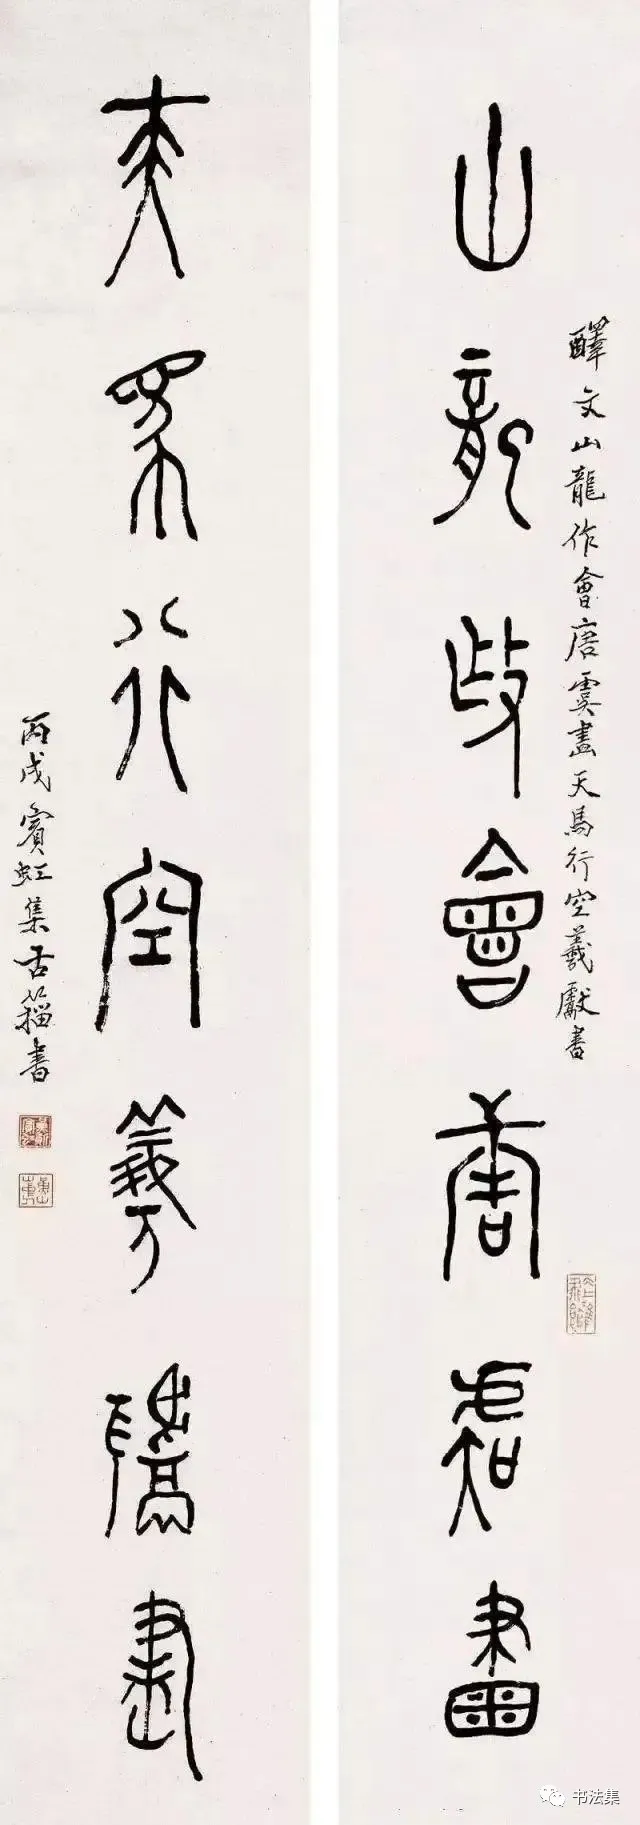 山龍作會唐虞畫
釋文山龍作會唐虞畫天馬行空羲獻書
天馬行空羲獻書
丙戌賓虹集古籀書
书法集